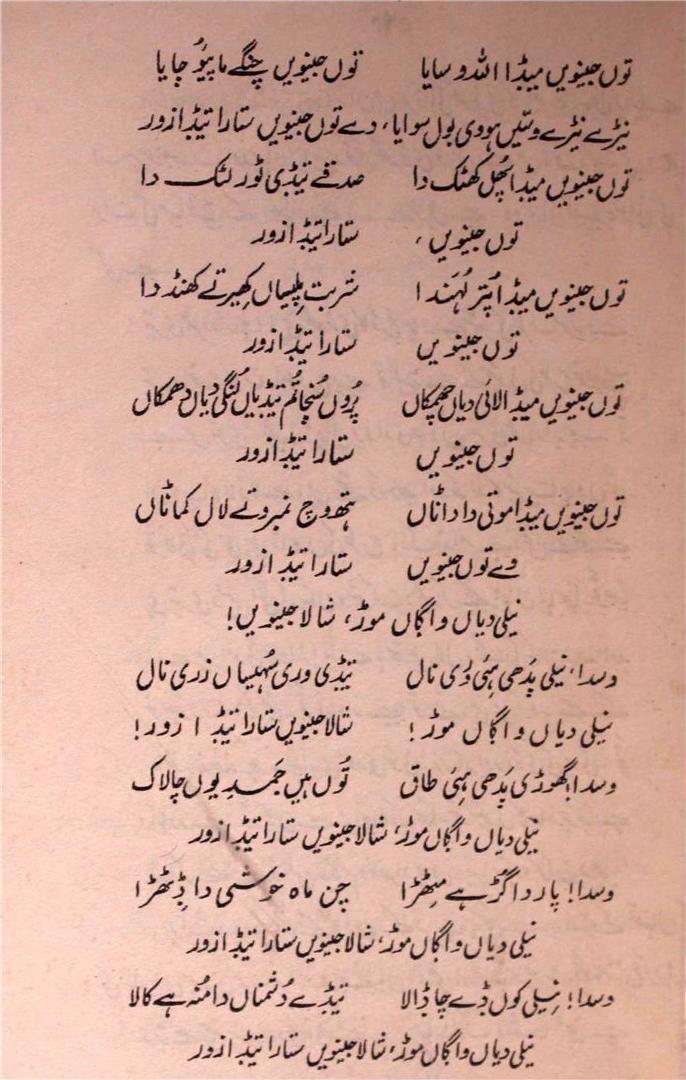 توں جینویں میڈا اللہ وسایا توں جینویں چنگے ماپیؤ جایا
نیڑے نیڑے وسّیں ہووی بول سوایا، دے توں جینویں ستارا تیڈا زور
توں جینویں میڈا سُچل کھٹک دا صدقے تیڈی ٹور لٹک دا
توں جینویں، ستارا تیڈا زور
توں جینویں میڈا پُتر ہُنَدا شربت پلیساں کھِیر تے کھنڈ دا
توں جینویں ستارا تیڈا زور
توں جینویں میڈا لائی دیاں جھمکاں پُروں سُنجاتُم تیڈیاں لُنگی دیاں دھمکاں
توں جینویں ستارا تیڈا زور
توں جینویں میڈا موتی دا داناں ہتھ وچ نمبر وتے لال کماناں
وے توں جینویں ستارا تیڈا زور
نیلی دیاں واگاں موڑ، شالا جینویں!
وسدا، نیلی بَدھی ہئی ڈی نال تیڈی وری سُہیساں زری نال
نیلی دیاں واگاں موڑ! شالا جینویں ستارا تیڈا زور!
وسدا! گھوڑی بَدھی ہئی طاق تُوں ہیں جَمدیوں چالاک
نیلی دیاں واگاں موڑ، شالا جینویں ستارا تیڈا زور
وسدا! پار دا گُڑ ہے مِٹھڑا چن ماہ خوشی دا ڈِٹھڑا
نیلی دیاں واگاں موڑ، شالا جینویں ستارا تیڈا زور
وسدا! نِیلی کوں ڈے چا ڈالا تیڈے دُشمناں دا مُنہ ہے کالا
نیلی دیاں واگاں موڑ، شالا جینویں ستارا تیڈا زور